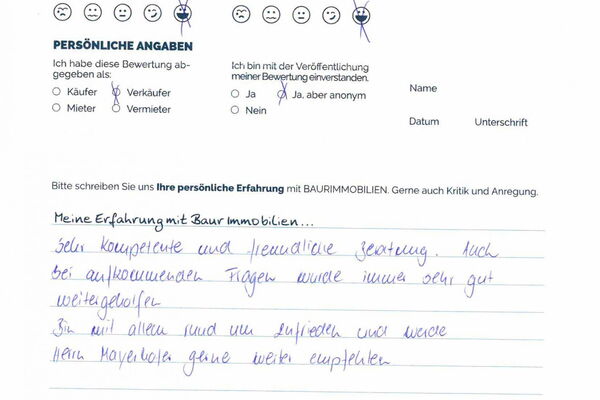 PERSÖNLICHE ANGABEN
Ich habe diese Bewertung ab-
gegeben als:
Käufer Verkäufer
Mieter Vermieter
Ich bin mit der Veröffentlichung
meiner Bewertung einverstanden.
Ja Ja, aber anonym
Nein
Name
Datum Unterschrift
Bitte schreiben Sie uns Ihre persönliche Erfahrung mit BAURIMMOBILIEN. Gerne auch Kritik und Anregung.
Meine Erfahrung mit Baur Immobilien...
Sehr kompetente und freundliche Beratung. Auch
bei aufkommenden Fragen wurde immer sehr gut
weitergeholfen
Bin mit allem rund um zufrieden und werde
Herrn Mayerhofer gerne weiter empfehlen